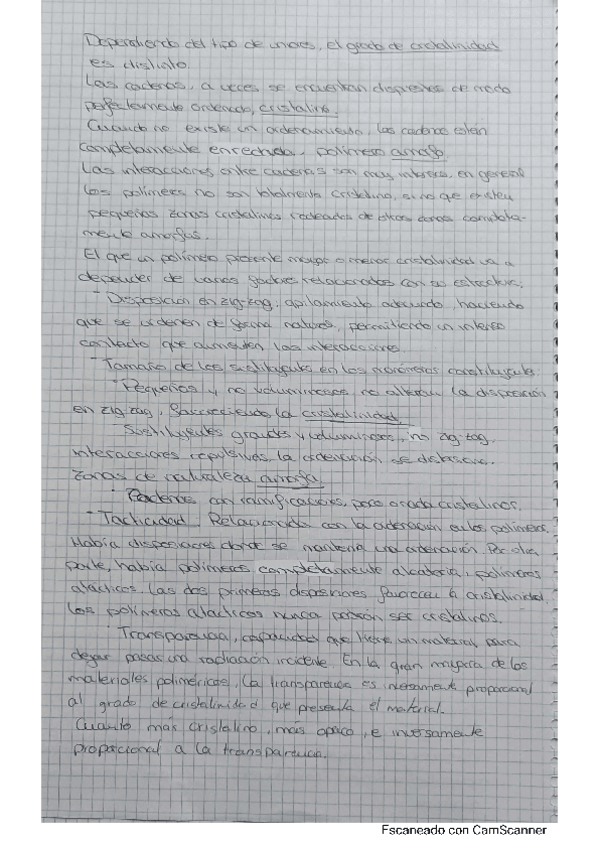 Dependiendo del tipo de uniones, el grado de cristalinidad
es distinto.
Las cadenas, a veces se encuentran dispuestas de modo
perfectamente ordenado, cristalino.
Cuando no existe un ordenamiento, las cadenas están
completamente enredadas, polímero amorfo.
Las interacciones entre cadenas son muy intensas, en general
los polímeros no son totalmente cristalino, sino que existen
pequeñas zonas cristalinas rodeadas de otras zonas completa-
mente amorfas.
El que un polímero presente mayor o menor cristalinidad va a
depender de varios factores relacionados con su estructura.
- Disposición en zig-zag, apilamiento adecuado, haciendo
que se ordenen de forma natural, permitiendo un intenso
contacto que aumentan las interacciones.
- Tamaño de los sustituyentes en los monómeros constituyentes.
- Pequeños y no voluminosos, no alteran la disposición
en zig zag, favoreciendo la cristalinidad.
- Sustituyentes grandes y voluminosos, no zig-zag,
interacciones repulsivas, la ordenación se distorsiona.
Zonas de naturaleza amorfa.
- Cadenas con ramificaciones, poco o nada cristalinos.
- Tacticidad. Relacionada con la ordenación en los polímeros.
Había disposiciones donde se mantenía una ordenación. Por otra
parte, había polímeros completamente aleatorios, polímeros
atácticos. Las dos primeras disposiciones favorecen la cristalinidad,
los polímeros atácticos nunca podrán ser cristalinos.
- Transparencia, capacidad que tiene un material para
dejar pasar una radiación incidente. En la gran mayoría de los
materiales poliméricos, la transparencia es inversamente proporcional
al grado de cristalinidad que presenta el material.
Cuanto más cristalino, más opaco, e inversamente
proporcional a la transparencia.
Escaneado con CamScanner